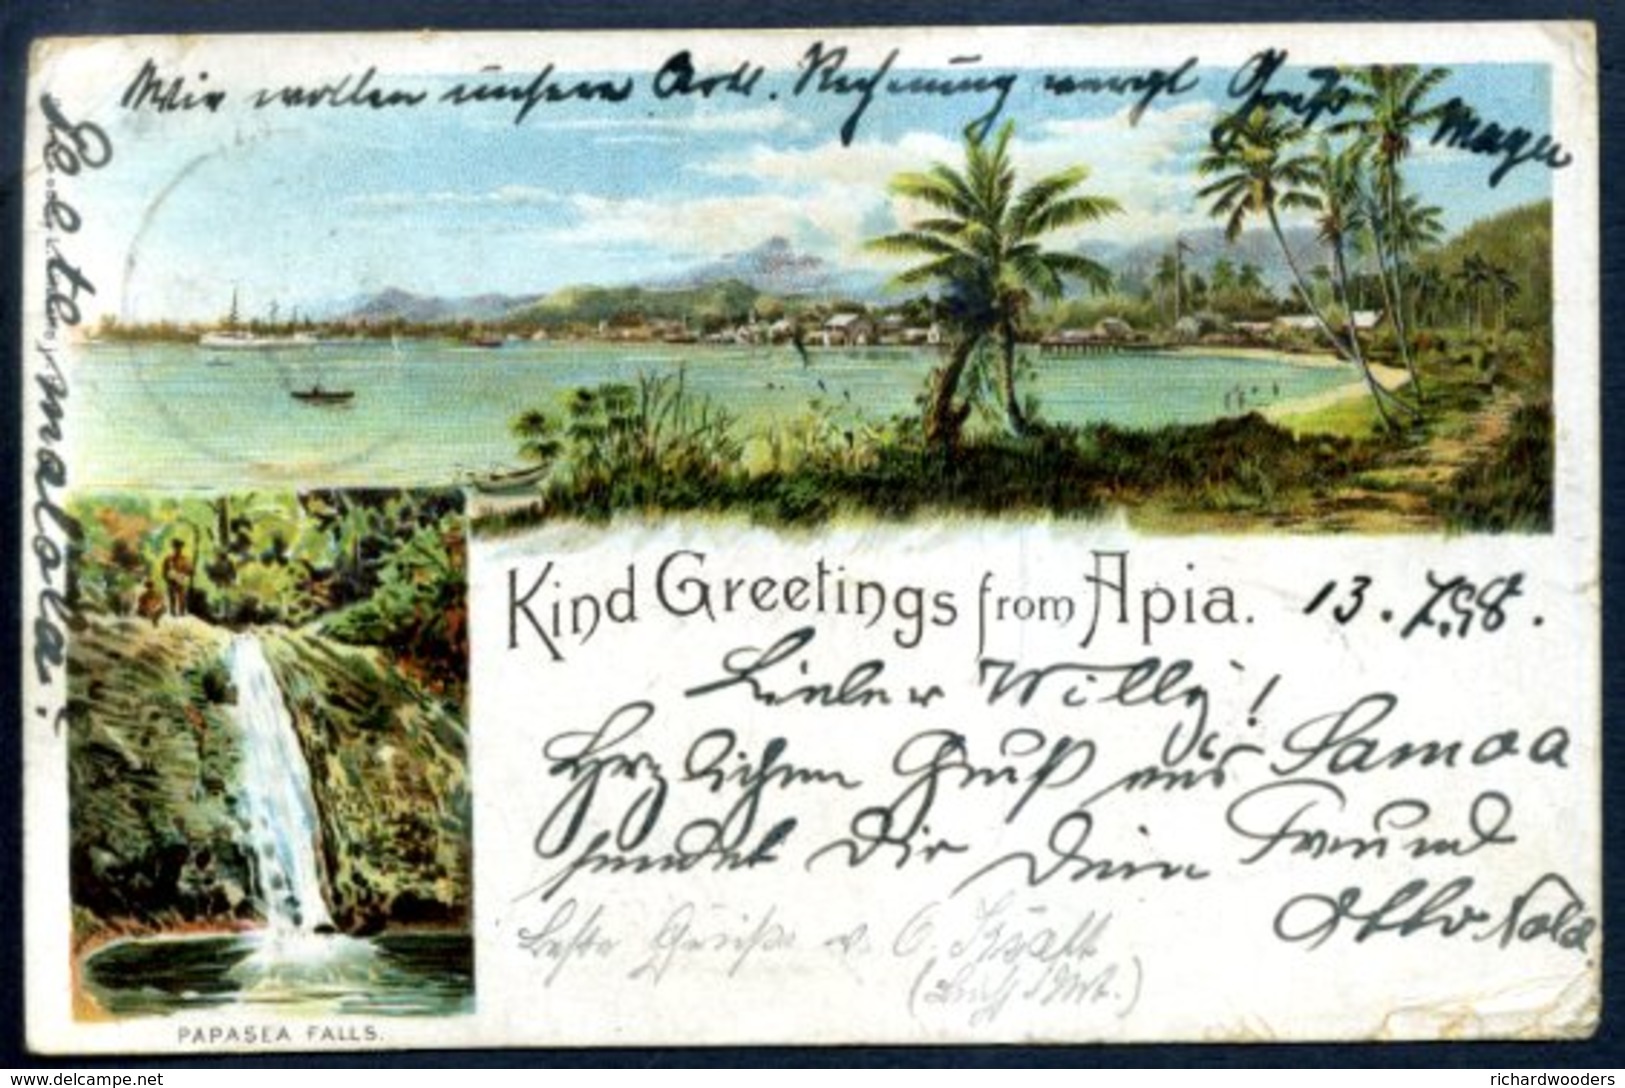 Wir wollen unsere Rechnung Gruß Mayer
Kind Greetings from Apia. 13.7.98.
Lieber Willy!
Herzlichen Gruß aus Samoa
sendet Dir Dein Freund
Otto
Beste Grüße v.
PAPASEA FALLS.
malola.
delcampe.net
richardwooders